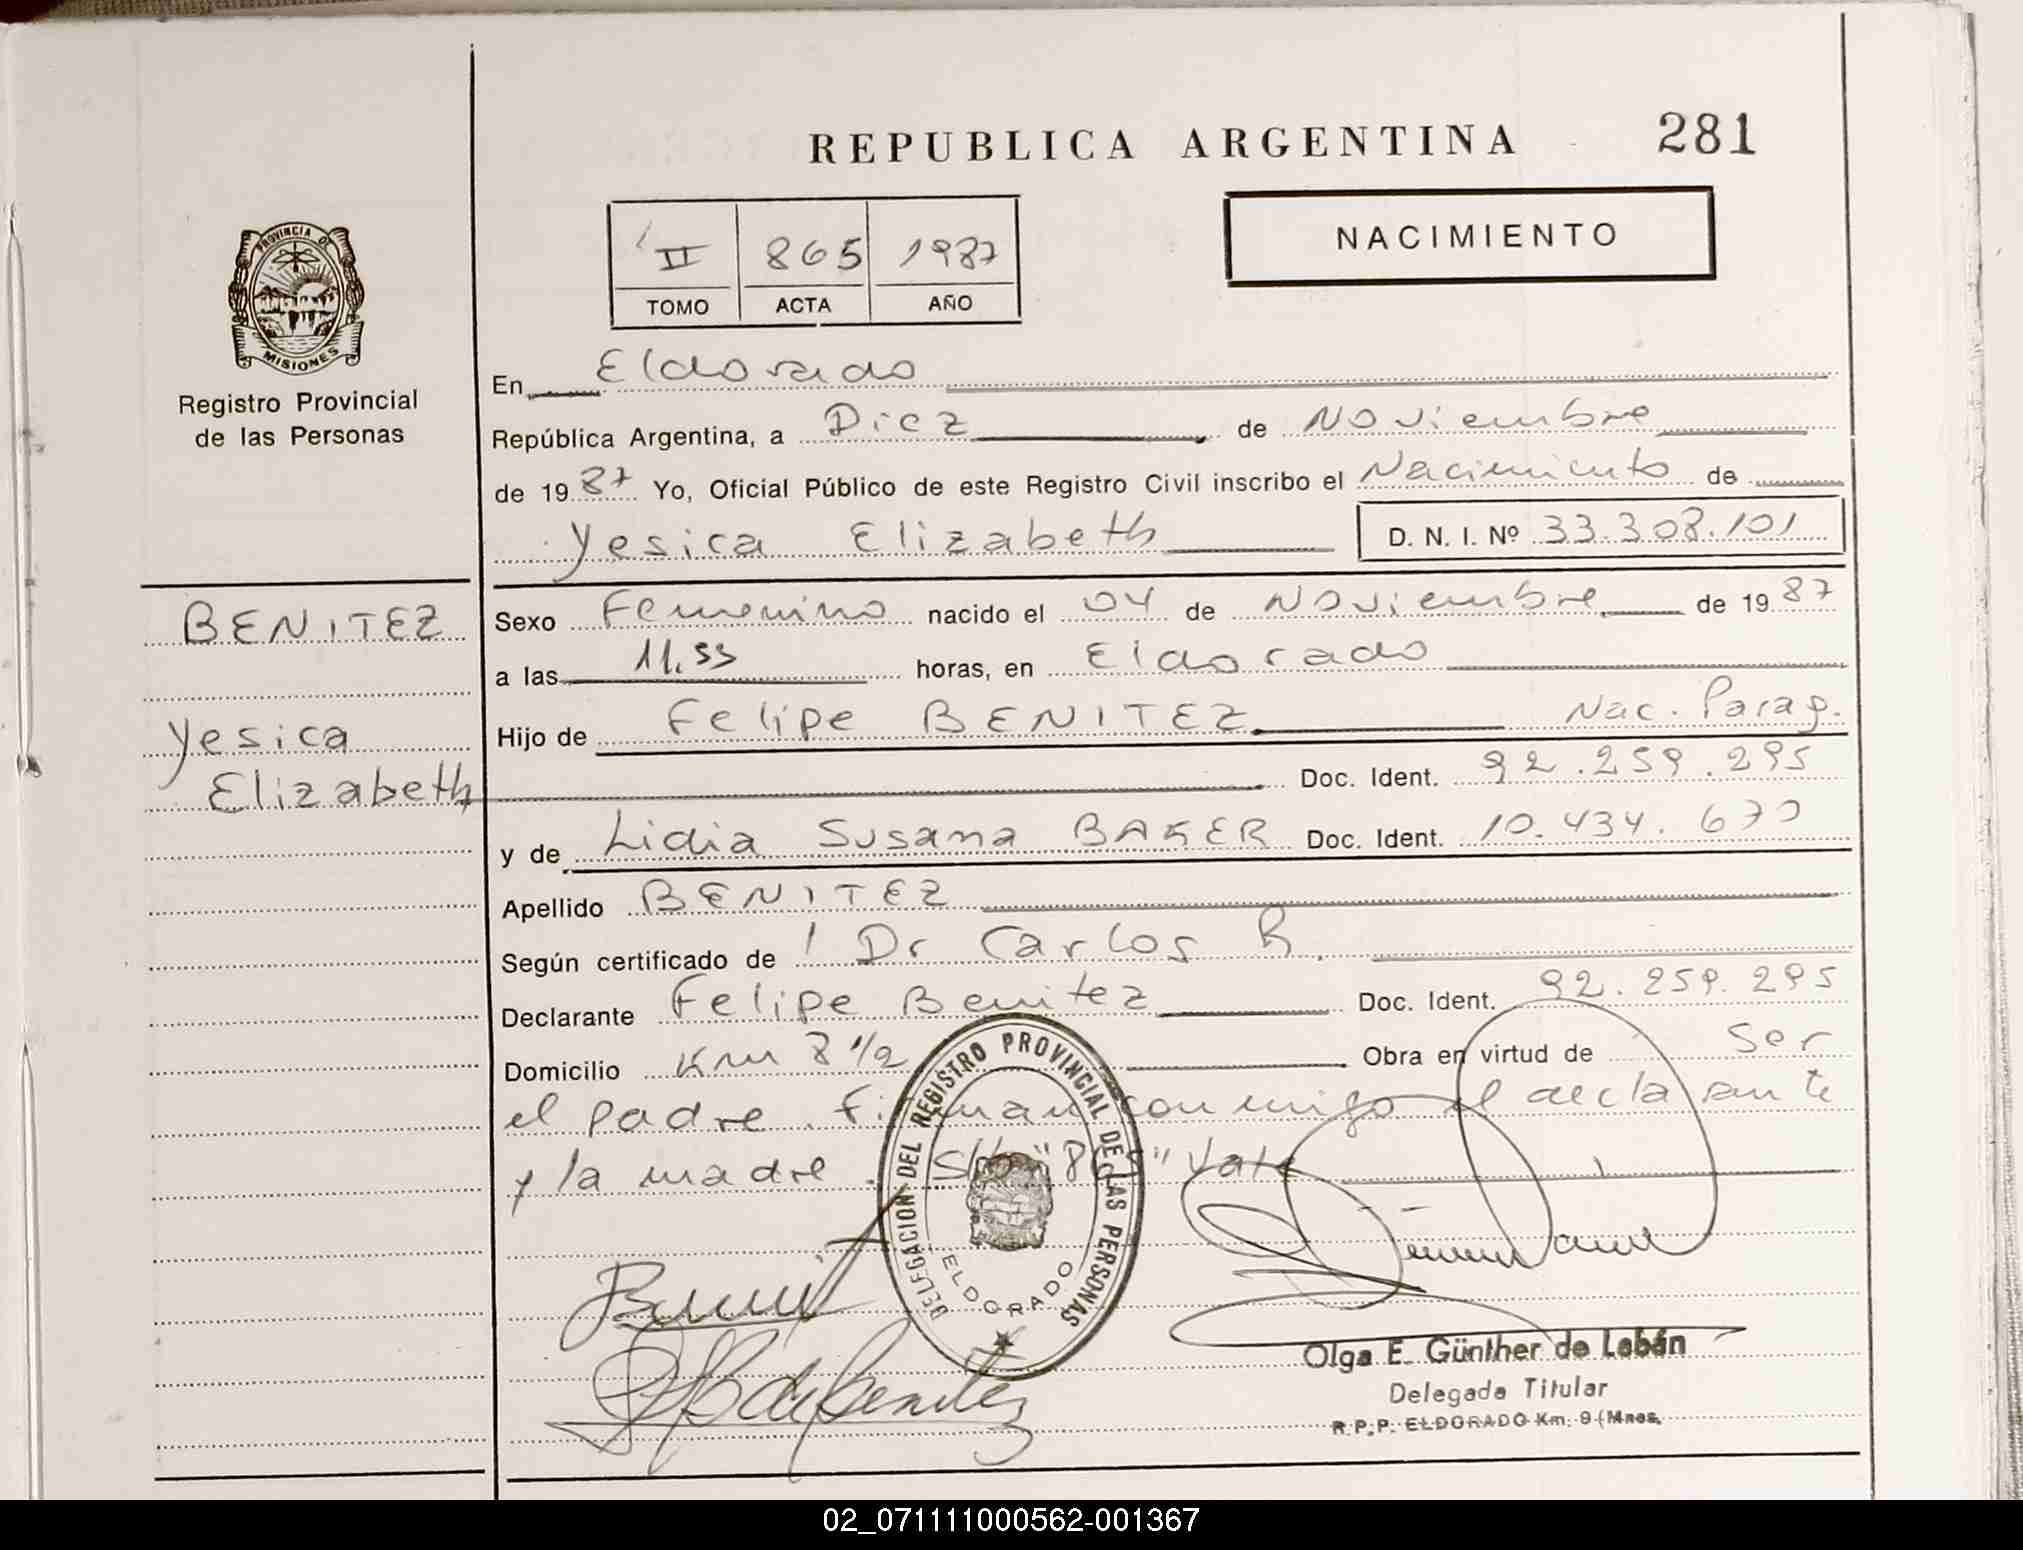 REPUBLICA ARGENTINA 281
NACIMIENTO
II 865 1987
TOMO ACTA AÑO
PROVINCIA DE
MISIONES
Registro Provincial
de las Personas
BENITEZ
Yesica
Elizabeth
En Eldorado
República Argentina, a Diez de Noviembre
de 1987 Yo, Oficial Público de este Registro Civil inscribo el Nacimiento de
Yesica Elizabeth D. N. I. Nº 33.308.101
Sexo Femenino nacido el 04 de Noviembre de 1987
a las 11.55 horas, en Eldorado
Hijo de Felipe BENITEZ Nac. Parag.
Doc. Ident. 92.259.295
y de Lidia Susana BAKER Doc. Ident. 10.434.670
Apellido BENITEZ
Según certificado de Dr Carlos R.
Declarante Felipe Benitez Doc. Ident. 92.259.295
Domicilio Km 8 1/2 Obra en virtud de Ser
el padre. Firman conmigo el declarante
y la madre. S/b "865" Vale
DELEGACION DEL REGISTRO PROVINCIAL DE LAS PERSONAS
ELDORADO
Olga E. Günther de Labán
Delegada Titular
R.P.P. ELDORADO Km. 9 (Mnes.
02_071111000562-001367